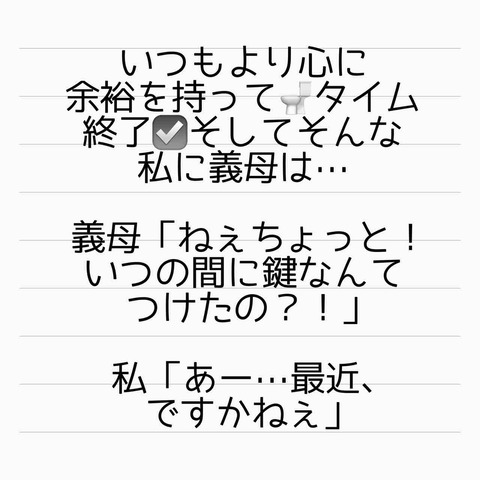 いつもより心に
余裕を持って🚽タイム
終了☑️そしてそんな
私に義母は…
義母「ねぇちょっと！
いつの間に鍵なんて
つけたの？！」
私「あー…最近、
ですかねぇ」